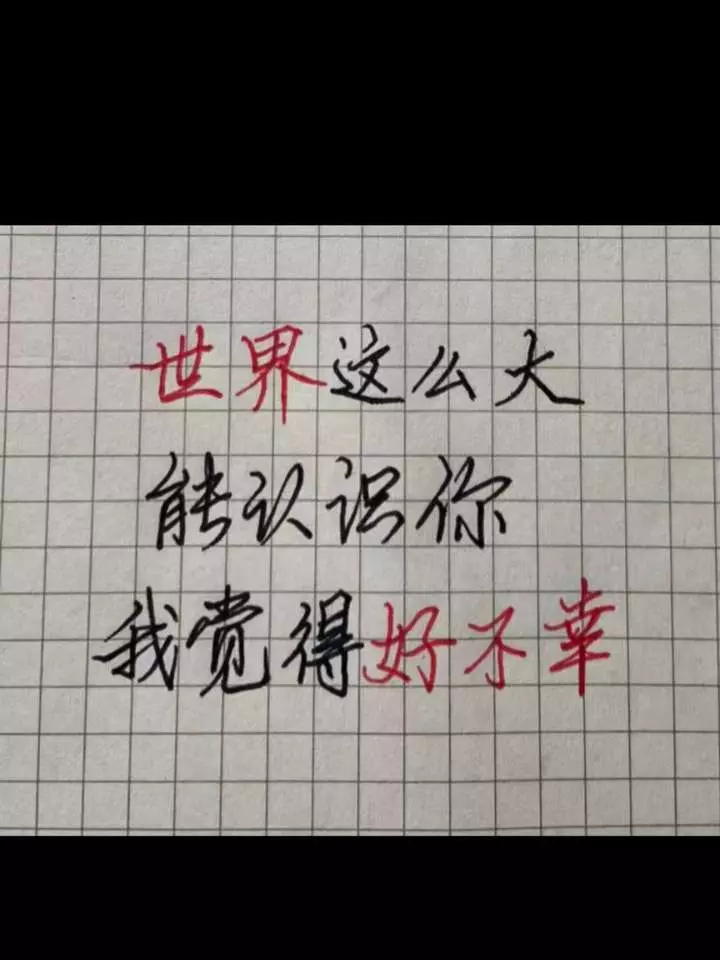 世界这么大
能认识你
我觉得好不幸